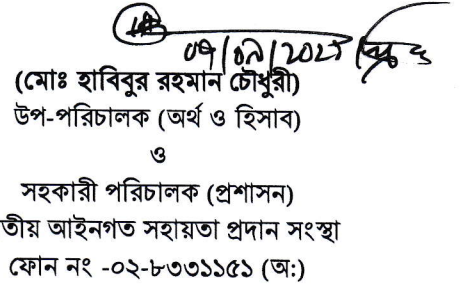 (মোঃ হাবিবুর রহমান চৌধুরী)
উপ-পরিচালক (অর্থ ও হিসাব)
ও
সহকারী পরিচালক (প্রশাসন)
তীয় আইনগত সহায়তা প্রদান সংস্থা
ফোন নং -০২-৮৩৩১১৫১ (অ:)